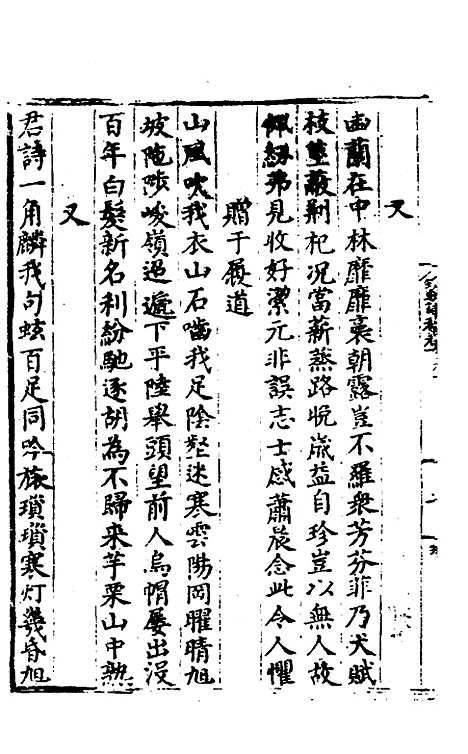 又
幽蘭在中林靡靡裛朝露豈不羅衆芳芬菲乃天賦
枝葉蔽荆杞况當薪蒸路晚歲益自珍豈以無人故
佩紉弗見收好潔元非誤志士感蕭晨念此令人懼
贈于履道
山風吹我衣山石嚙我足陰壑迷寒雲陽岡曜晴旭
坡陁陟峻嶺迢遞下平陸舉頭望前人烏帽屢出没
百年白髮新名利紛馳逐胡為不歸来芋栗山中熟
又
君詩一角麟我句蚿百足同吟旅瑣瑣寒灯幾昏旭